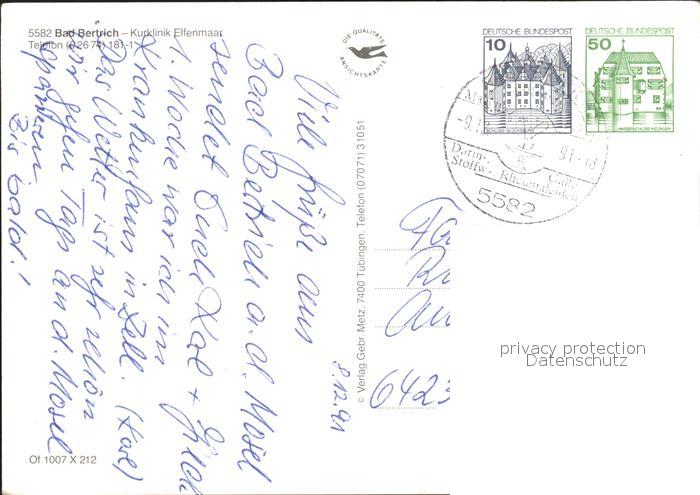 5582 Bad Bertrich – Kurklinik Elfenmaar
Telefon (0 26 74) 181-1
DIE QUALITÄTS
ANSICHTSKARTE
DEUTSCHE BUNDESPOST
10
SCHLOSS GLÜCKSBURG
DEUTSCHE BUNDESPOST
50
WASSERSCHLOSS INZLINGEN
-9.1
91-18
Darm-, Galle
Stoffw- Rheumaleiden
5582
8.12.91
Viele Grüße aus
Bad Bertrich a.d. Mosel
sendet Euch Kal + Gerda
1. Woche war ich im
Krankenhaus in Zell. (Kal)
Das Wetter ist sehr schön
wir gehen Tags an d. Mosel
spazieren
Bis bald!
Of 1007 X 212
© Verlag Gebr. Metz, 7400 Tübingen, Telefon (07071) 31051
Fa
6423
privacy protection
Datenschutz